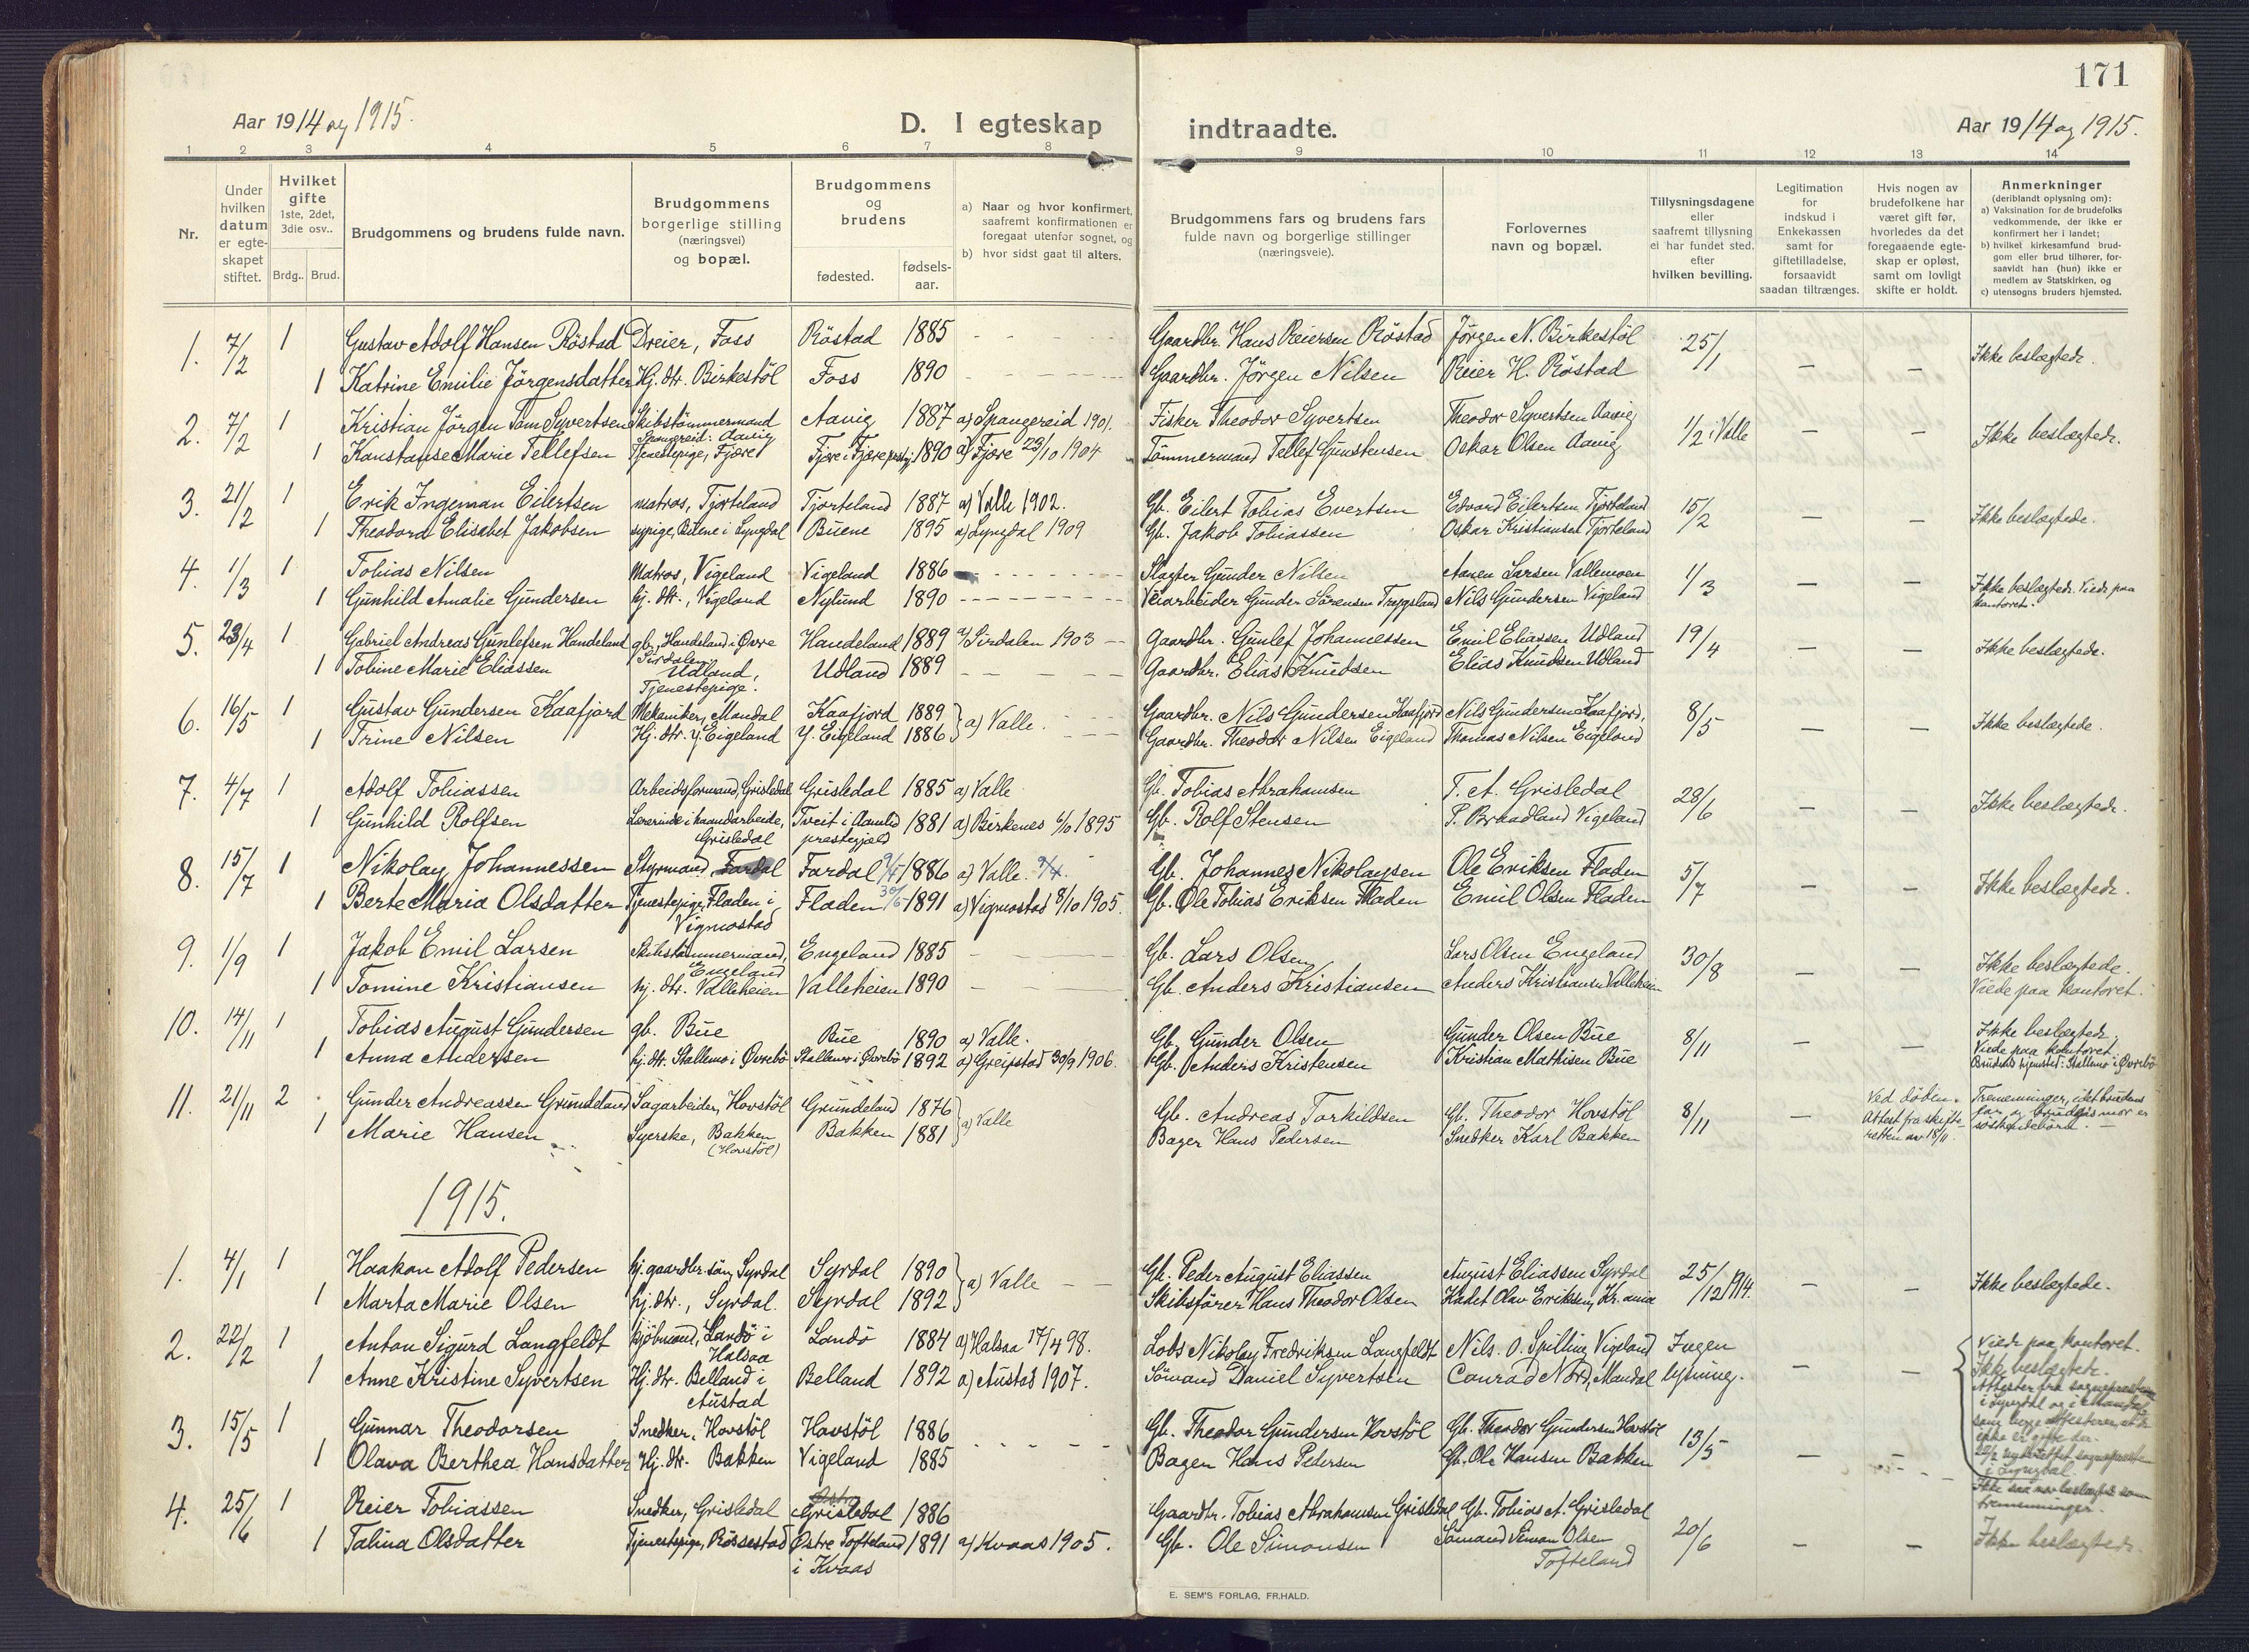 171
Aar 1914 og 1915.
D. I egteskap indtraadte.
Aar 1914 og 1915.
1 2 3 4 5 6 7 8 9 10 11 12 13 14
Nr.
Under hvilken datum er egteskapet stiftet.
Hvilket gifte 1ste, 2det, 3die osv..
Brdg.. Brud.
Brudgommens og brudens fulde navn.
Brudgommens borgerlige stilling (næringsvei) og bopæl.
Brudgommens og brudens
fødested.
fødsels-aar.
a) Naar og hvor konfirmert, saafremt konfirmationen er foregaat utenfor sognet, og
b) hvor sidst gaat til alters.
Brudgommens fars og brudens fars fulde navn og borgerlige stillinger (næringsveie).
Forlovernes navn og bopæl.
Tillysningsdagene eller saafremt tillysning ei har fundet sted, efter hvilken bevilling.
Legitimation for indskud i Enkekassen samt for giftetilladelse, forsaavidt saadan tiltrænges.
Hvis nogen av brudefolkene har været gift før, hvorledes da det foregaaende egteskap er opløst, samt om lovligt skifte er holdt.
Anmerkninger (deriblandt oplysning om):
a) Vaksination for de brudefolks vedkommende, der ikke er konfirmert her i landet;
b) hvilket kirkesamfund brudgom eller brud tilhører, forsaavidt han (hun) ikke er medlem av Statskirken, og
c) utensogns bruders hjemsted.
1. 7/2 1 Gustav Adolf Hansen Röstad Dreier, Foss Röstad 1885 - - Gaardbr. Hans Reiersen Röstad Jørgen N. Birkestöl 25/1 — — Ikke beslægtede.
1 Katrine Emilie Jörgensdatter Hj. dtr. Birkestöl Foss 1890 - - Gaardbr. Jörgen Nilsen Reier H. Röstad
2. 7/2 1 Kristian Jörgen Tom Syvertsen Skibstömmermand Spangereid: Aavig Aavig 1887 a) Spangereid 1901. Fisker Theodor Syvertsen Theodor Syvertsen Aavig 1/2 i Valle — — Ikke beslægtede.
1 Konstanse Marie Tellefsen Tjenestepige, Fjære Fjære i Fjære prstgj. 1890 a) Fjære 23/10 1904 Tömmermand Tellef Gunstensen Oskar Olsen Aavig
3. 21/2 1 Erik Ingeman Eilertsen matros, Tjorteland Tjorteland 1887 a) Valle 1902. Gb. Eilert Tobias Evertsen Edvard Eilertsen Tjorteland 15/2 — — Ikke beslægtede.
1 Theodora Elisabet Jakobsen sypige, Büene i Lyngdal Büene 1895 a) Lyngdal 1909 Gb. Jakob Tobiassen Oskar Kristiansen Tjorteland
4. 1/3 1 Tobias Nilsen Matros, Vigeland Vigeland 1886 - - Slagter Gunder Nilsen Aanen Larsen Vallemoen 1/3 — — Ikke beslægtede. Viede paa kontoret.
1 Gunhild Amalie Gundersen hj. dtr., Vigeland Nylund 1890 - - Veiarbeider Gunder Sørensen Tryggsland Nils Gundersen Vigeland
5. 23/4 1 Gabriel Andreas Gunlefsen Handeland gb., Handeland i Øvre Sirdalen Handeland 1889 a) Sirdalen 1903 — Gaardbr. Gunlef Johannessen Emil Eliassen Udland 19/4 — — Ikke beslægtede.
1 Tobine Marie Eliassen Udland, Tjenestepige. Udland 1889 — — Gaardbr. Elias Knudsen Elias Knudsen Udland
6. 16/5 1 Gustav Gundersen Kaafjord Mekaniker, Mandal Kaafjord 1889 } a) Valle. Gaardbr. Nils Gundersen Kaafjord Nils Gundersen Kaafjord, 8/5 — — Ikke beslægtede.
1 Trine Nilsen Hj. dtr. Y. Eigeland Y. Eigeland 1886 Gaardbr. Theodor Nilsen Eigeland Thomas Nilsen Eigeland
7. 4/7 1 Adolf Tobiassen Arbeidsformand, Grisledal Grisledal 1885 a) Valle Gb. Tobias Abrahamsen T. A. Grisledal 28/6 — — Ikke beslægtede.
1 Gunhild Rolfsen Lærerinde i haandarbeide, Grisledal Tveit i Aamlid prestegjæld 1881 a) Birkenes 6/10 1895 Gb. Rolf Stensen P. Braadland Vigeland
8. 15/7 1 Nikolay Johannessen Styrmand, Fardal Fardal 9/5 1886 a) Valle. Gb. Johannes Nikolaysen Ole Eriksen Fladen 5/7 — — Ikke beslægtede.
1 Berte Maria Olsdatter Tjenestepige, Fladen i Vigmostad Fladen 30/6 1891 a) Vigmostad 8/10 1905. Gb. Ole Tobias Eriksen Fladen Emil Olsen Fladen
9. 1/9 1 Jakob Emil Larsen Skibstömmermand, Engeland Engeland 1885 — — Gb. Lars Olsen Lars Olsen Engeland 30/8 — — Ikke beslægtede. Viede paa kontoret.
1 Tomine Kristiansen hj. dtr. Valleheien Valleheien 1890 — — Gb. Anders Kristiansen Anders Kristiansen Valleheien
10. 14/11 1 Tobias August Gundersen gb. Büe Büe 1890 a) Valle. Gb. Gunder Olsen Gunder Olsen Büe 8/11 — — Ikke beslægtede. Viede paa kontoret. Brudens hjemsted: Stallemo i Øvrebö
1 Anna Andersen hj. dtr. Stallemo i Øvrebö Stallemo i Øvrebö 1892 a) Greipstad 30/9 1906. Gb. Anders Kristensen Kristian Mathisen Büe
11. 21/11 2 Gunder Andreassen Grundeland Sagarbeider, Hovstöl Grundeland 1876 } a) Valle Gb. Andreas Torkildsen Gb. Theodor Hovstöl 8/11 — Ved døden. Attest fra skifteretten av 18/11. Tremenninger, idet brudens far og brudgs. mor er søskendebørn.
1 Marie Hansen Syerske, Bakken (Hovstöl) Bakken 1881 Bager Hans Pedersen Snedker Karl Bakken
1915.
1. 4/1 1 Haakon Adolf Pedersen hj. gaardbr. sön, Syrdal Syrdal 1890 } a) Valle — — Gb. Peder August Eliassen August Eliassen Syrdal 25/12 1914. — — Ikke beslægtede.
1 Marta Marie Olsen hj. dtr., Syrdal. Syrdal 1892 Skibsfører Hans Theodor Olsen Kadet Olav Eriksen, Kr. ania
2. 22/2 1 Anton Sigurd Langfeldt kjöbmand, Landö i Halsaa Landö 1884 a) Halsaa 17/4 98. Lods Nikolay Fredriksen Langfeldt Nils. O. Spilling, Vigeland Ingen lysning. — — Viede paa kontoret. Ikke beslægtede. Attester fra sogneprestene i Lyngdal og i Mandal
1 Anne Kristine Syvertsen Hj. dtr. Belland i Austad Belland 1892 a) Austad 1907. Sömand Daniel Syvertsen Conrad Nord, Mandal
3. 15/5 1 Gunnar Theodorsen Snedker, Hovstöl Hovstöl 1886 - - Gb. Theodor Gundersen Hovstöl Gb. Theodor Gundersen Hovstöl 13/5 — — Ikke saa nær beslægtede som tremenninger.
1 Olava Berthea Hansdatter Hj. dtr. Bakken Vigeland 1885 Bager Hans Pedersen Gb. Ole Hansen Bakken
4. 25/6 1 Reier Tobiassen Snedker, Grisledal Grisledal 1886 Gaardbr. Tobias Abrahamsen Grisledal Gb. Tobias A. Grisledal 20/6 — — Ikke beslægtede.
1 Talina Olsdatter Tjenestepige, Rössestad Østre Tofteland i Kvaas 1891 a) Kvaas 1905. Gb. Ole Simonsen Sömand Simon Olsen Tofteland
E. SEM'S FORLAG, FR.HALD.